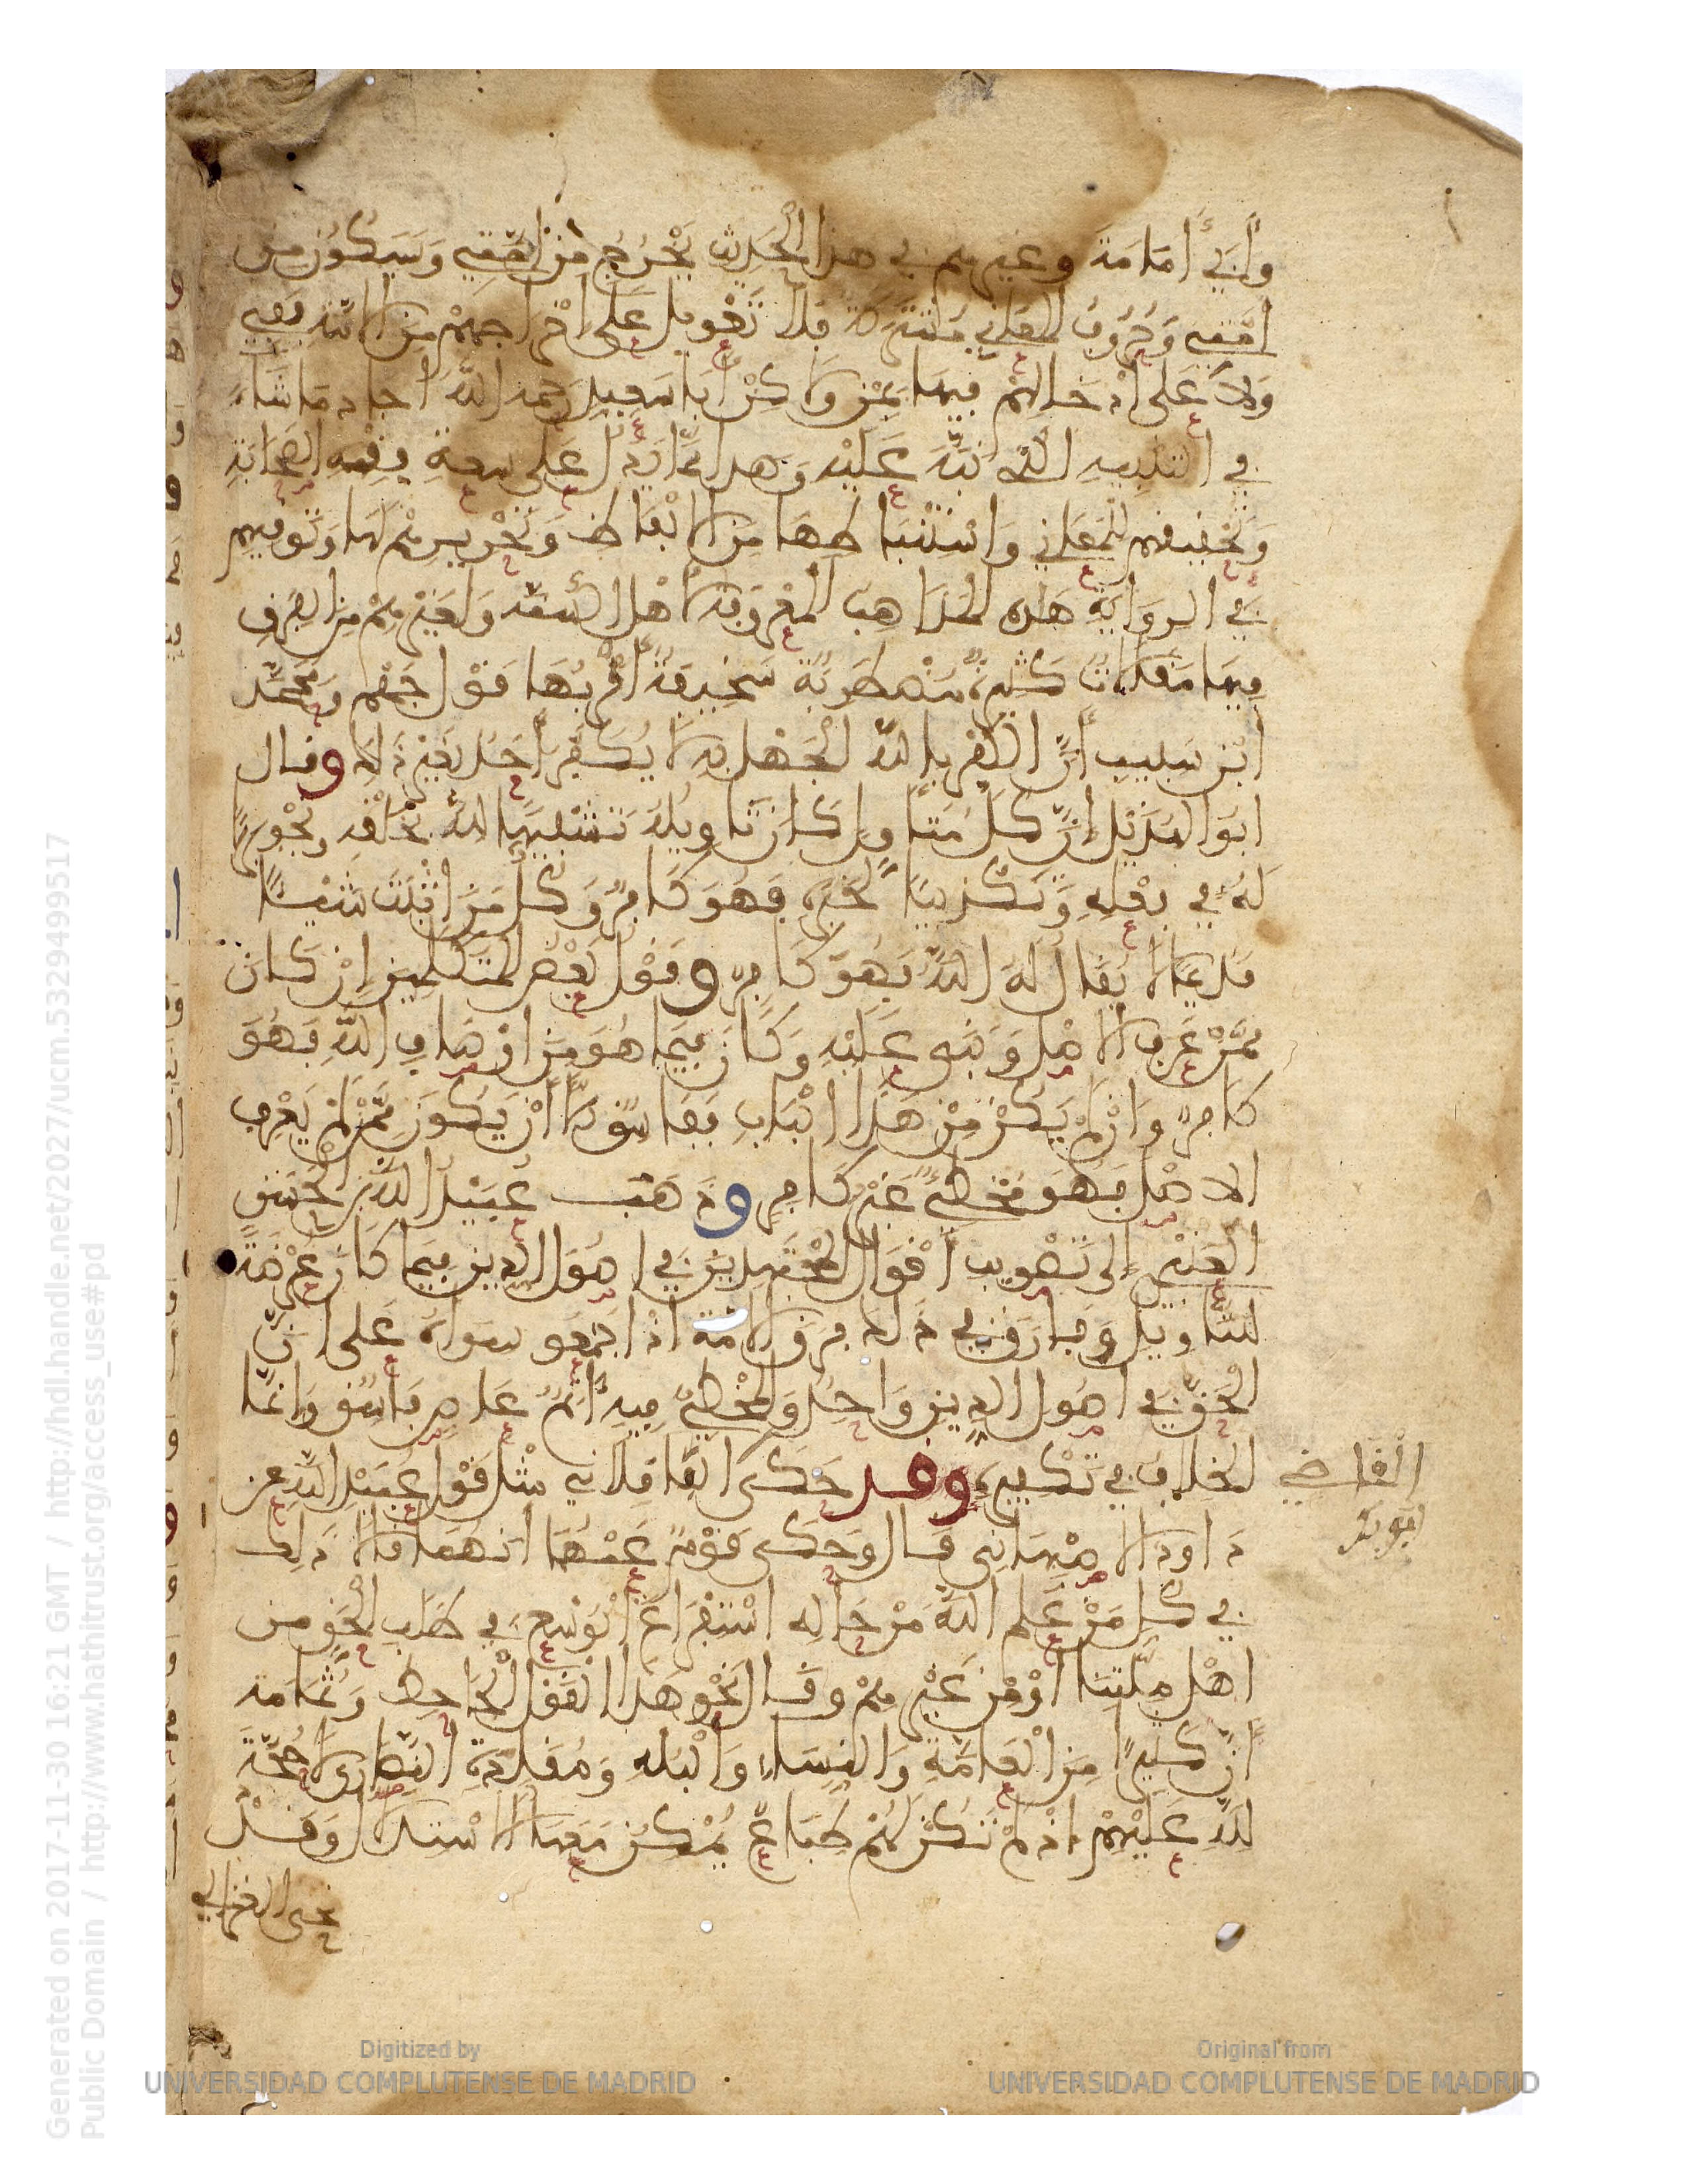 وَأَبِي أُمَامَةَ وغيرهم في هذا الحَدِيثِ يَخْرُجُ مِنْ أُمَّتِي وَسَيَكُونُ مِن
أُمَّتِي وَحُرُوفُ المَعَانِي مُشْتَرَكَةٌ فَلَا تَعْوِيلَ عَلَى إِخْرَاجِهِمْ مِنَ الأُمَّةِ بِفِي
وَلَا عَلَى إِدْخَالِهِمْ فِيهَا بِمِنْ وَلَاكِنْ أَبَا سَعِيدٍ رحمه اللَّهُ أجاد مَا شَاءَ
فِي التنبيه الَّذِي نَبَّهَ عَلَيْهِ وَهَذَا مِمَّا يَدُلُّ عَلَى سعةِ فِقْهِ الصَّحَابَةِ
وَتَحْقِيقِهِم لِلْمَعَانِي وَاسْتِنْبَاطِهَا مِنَ الألْفَاظِ وَتَحْرِيرِهِمْ لَهَا وَتَوَقِّيهِم
فِي الرِّوَايَةِ هَذِهِ المَذَاهِبُ المَعْرُوفَةُ لأَهْلِ السُّنَّةِ وَلِغَيْرِهِمْ مِنَ الفِرَقِ
فِيهَا مَقَالَاتٌ كَثِيرَةٌ مُضْطَرِبَةٌ سَخِيفَةٌ أَقْرَبُهَا قَوْلُ جَهْمٍ وَمُحَمَّد
ابْنِ شَبِيبٍ أَنَّ الكُفْرَ باللهِ الجَهْلُ بِهِ لَا يُكَفَّرُ أَحَدٌ بِغَيْرِ ذَلِكَ وقال
أَبُو الهُذَيْلِ إِنَّ كُلَّ مُتَأَوِّلٍ كَانَ تَأْوِيلُهُ تَشْبِيهًا للهِ بِخَلْقِهِ وَتَجْوِيرًا
لَهُ فِي فِعْلِهِ وَتَكْذِيبًا لِخَبَرِهِ فَهُوَ كَافِرٌ وَكُلُّ مَنْ أَثْبَتَ شَيْئًا
قَدِيمًا لَا يُقَالُ لَهُ اللَّهُ فَهُوَ كَافِرٌ وَقَوْلُ بَعْضِ المُتَكَلِّمِينَ إِنْ كَانَ
مِمَّنْ عَرَفَ الأَصْلَ وَبَنَى عَلَيْهِ وَكَانَ فِيمَا هُوَ مِنْ أَوْصَافِ اللَّهِ فَهُوَ
كَافِرٌ وَإِنْ لَمْ يَكُنْ مِنْ هَذَا البَابِ فَفَاسِقٌ إِلَّا أَنْ يَكُونَ مِمَّنْ لَمْ يَعْرِفِ
الأَصْلَ فَهُوَ مُخْطِئٌ غَيْرُ كَافِرٍ وذَهَبَ عُبَيْدُ اللَّهِ بْنُ الحَسَنِ
العَنْبَرِيُّ إِلَى تَصْوِيبِ أَقْوَالِ المُجْتَهِدِينَ فِي أُصُولِ الدِّينِ فِيمَا كَانَ عُرْضَةً
لِلتَّأْوِيلِ وَفَارَقَ فِي ذَلِكَ فِرَقَ الأُمَّةِ إِذْ أَجْمَعُوا سِوَاهُ عَلَى أَنَّ
الحَقَّ فِي أُصُولِ الدِّينِ وَاحِدٌ وَالمُخْطِئُ فِيهِ آثِمٌ عَاصٍ فَاسِقٌ وَإِنَّمَا
الخِلَافُ فِي تَكْفِيرِهِ وقد حَكَى القَاضِي
البَاقِلَانِي مِثْلَ قَوْلِ عُبَيْدِ اللَّهِ عن
أبو بكر
دَاودَ الأصْبَهَانِي قَالَ وَحَكَى قَوْمٌ عَنْهُمَا أَنَّهُمَا قَالَا ذَلِكَ
فِي كُلِّ مَنْ عَلِمَ اللَّهُ مِنْ حَالِهِ اسْتِفْرَاغَ الوُسْعِ فِي طَلَبِ الحَقِّ مِن
أَهْلِ مِلَّتِنَا أَوْ مِنْ غَيْرِهِمْ وَقَالَ نَحْوَ هَذَا القَوْلِ الجَاحِظُ وَثُمَامَةُ
أَنَّ كَثِيرًا مِنَ العَامَّةِ وَالنِّسَاءِ وَالبُلْهِ وَمُقَلِّدَةِ النَّصَارَى لَا حُجَّةَ
لِلَّهِ عَلَيْهِمْ إِذْ لَمْ تَكُنْ لَهُمْ طِبَاعٌ يُمْكِنُ مَعَهَا الِاسْتِدْلَالُ وَقَدْ
نحى الغزالي